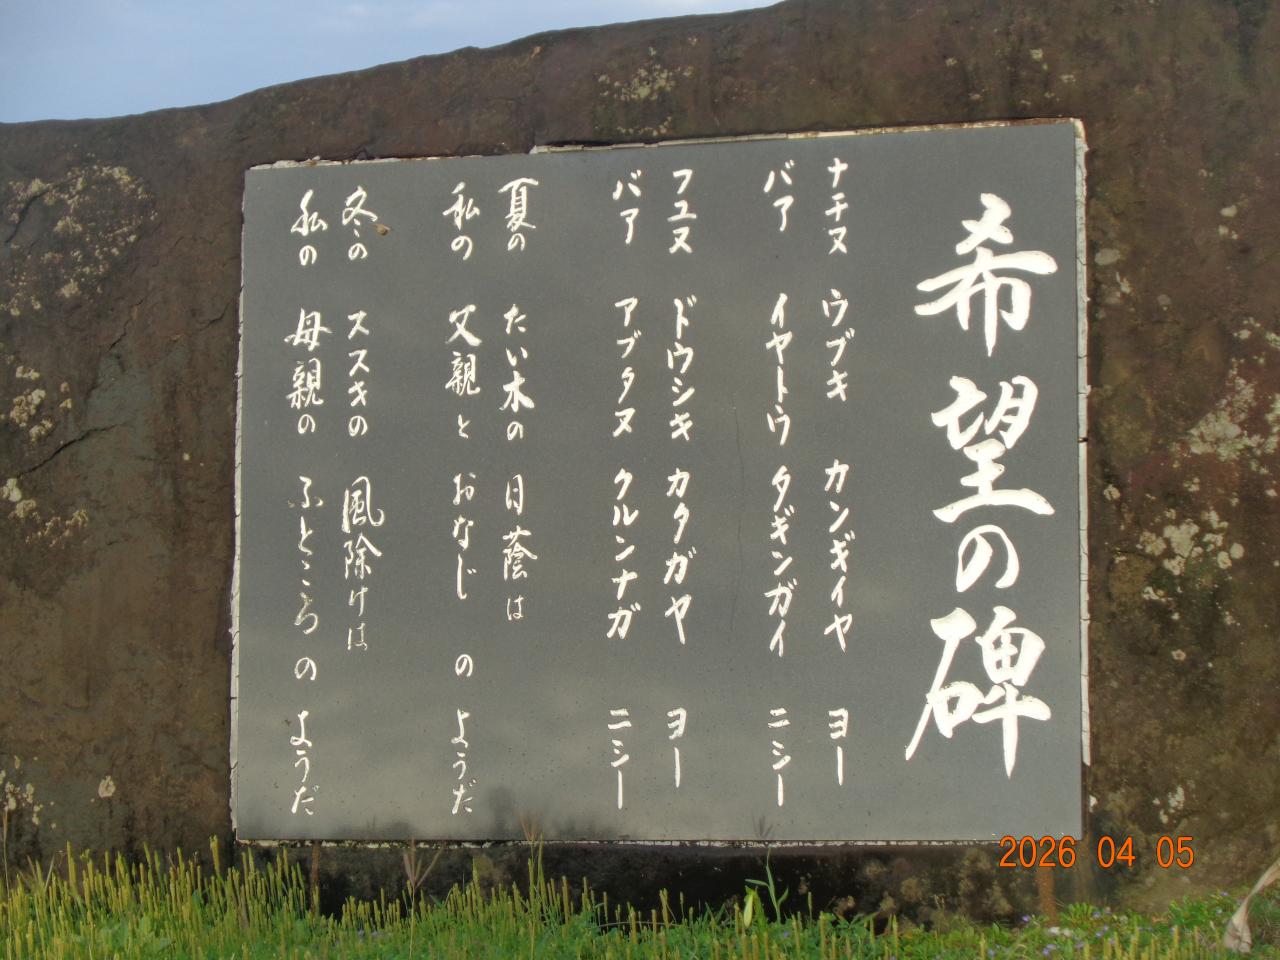 希望の碑
ナチヌ ウブキ カンギイヤ ヨー
バア イヤトウ タギンガイ ニシー
フユヌ ドウシキ カタガヤ ヨー
バア アブタヌ クルンナガ ニシー
夏の たい木の 日蔭は
私の 父親と おなじ の ようだ
冬の ススキの 風除けは
私の 母親の ふところ の ようだ
2026 04 05